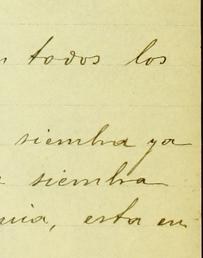 todos los
siembra ya
siembra
esta en